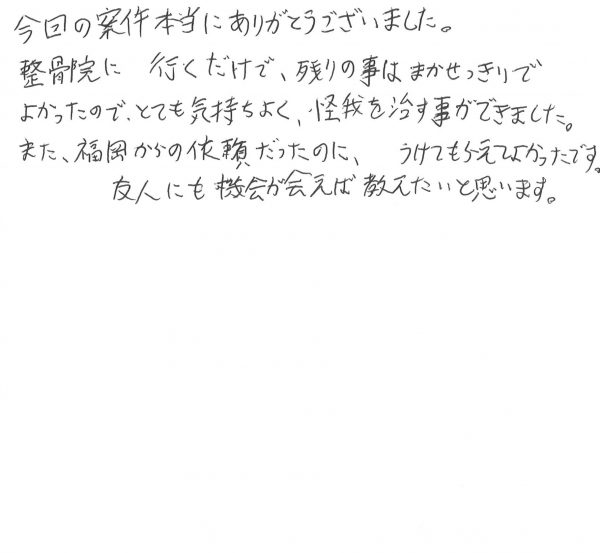 今回の案件本当にありがとうございました。
整骨院に 行くだけで、残りの事はまかせっきりで
よかったので、とても気持ちよく、怪我を治す事ができました。
また、福岡からの依頼だったのに、 うけてもらえてよかったです。
友人にも機会が会えば教えたいと思います。